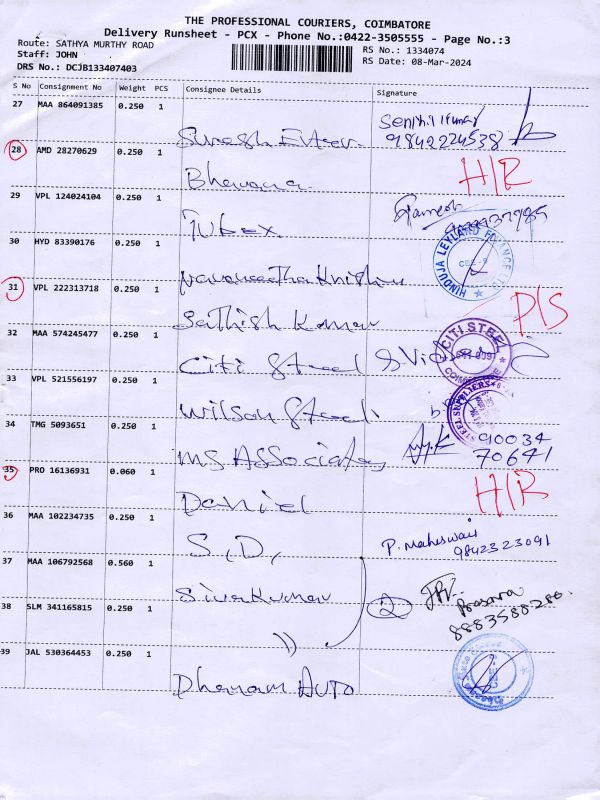 THE PROFESSIONAL COURIERS, COIMBATORE
Delivery Runsheet - PCX - Phone No.:0422-3505555 - Page No.:3
Route: SATHYA MURTHY ROAD
RS No.: 1334074
Staff: JOHN
RS Date: 08-Mar-2024
DRS No.: DCJB133407403
S No Consignment No Weight PCS Consignee Details Signature
27 MAA 864091385 0.250 1
Senthil Kumar
9842224538
Suresh
28 AMD 28270629 0.250 1
H/R
Bhuvana
29 VPL 124024104 0.250 1
Ramesh
Tubex
30 HYD 83390176 0.250 1
HINDUJA LEYLAND FINANCE LTD
Navaneetha Krishnan
31 VPL 222313718 0.250 1
P/S
Sathish Kumar
32 MAA 574245477 0.250 1
CITI STEEL
Citi Steel
33 VPL 521556197 0.250 1
STEEL SUPPLIERS
Wilson Steel
34 TMG 5093651 0.250 1
90034
70641
MS Associates
35 PRO 16136931 0.060 1
H/R
Daniel
36 MAA 102234735 0.250 1
P. Maheswari
9842323091
S.D,
37 MAA 106792568 0.560 1
Sivakumar
2
38 SLM 341165815 0.250 1
Prasana
8883588200
"
39 JAL 530364453 0.250 1
Dhanam Auto